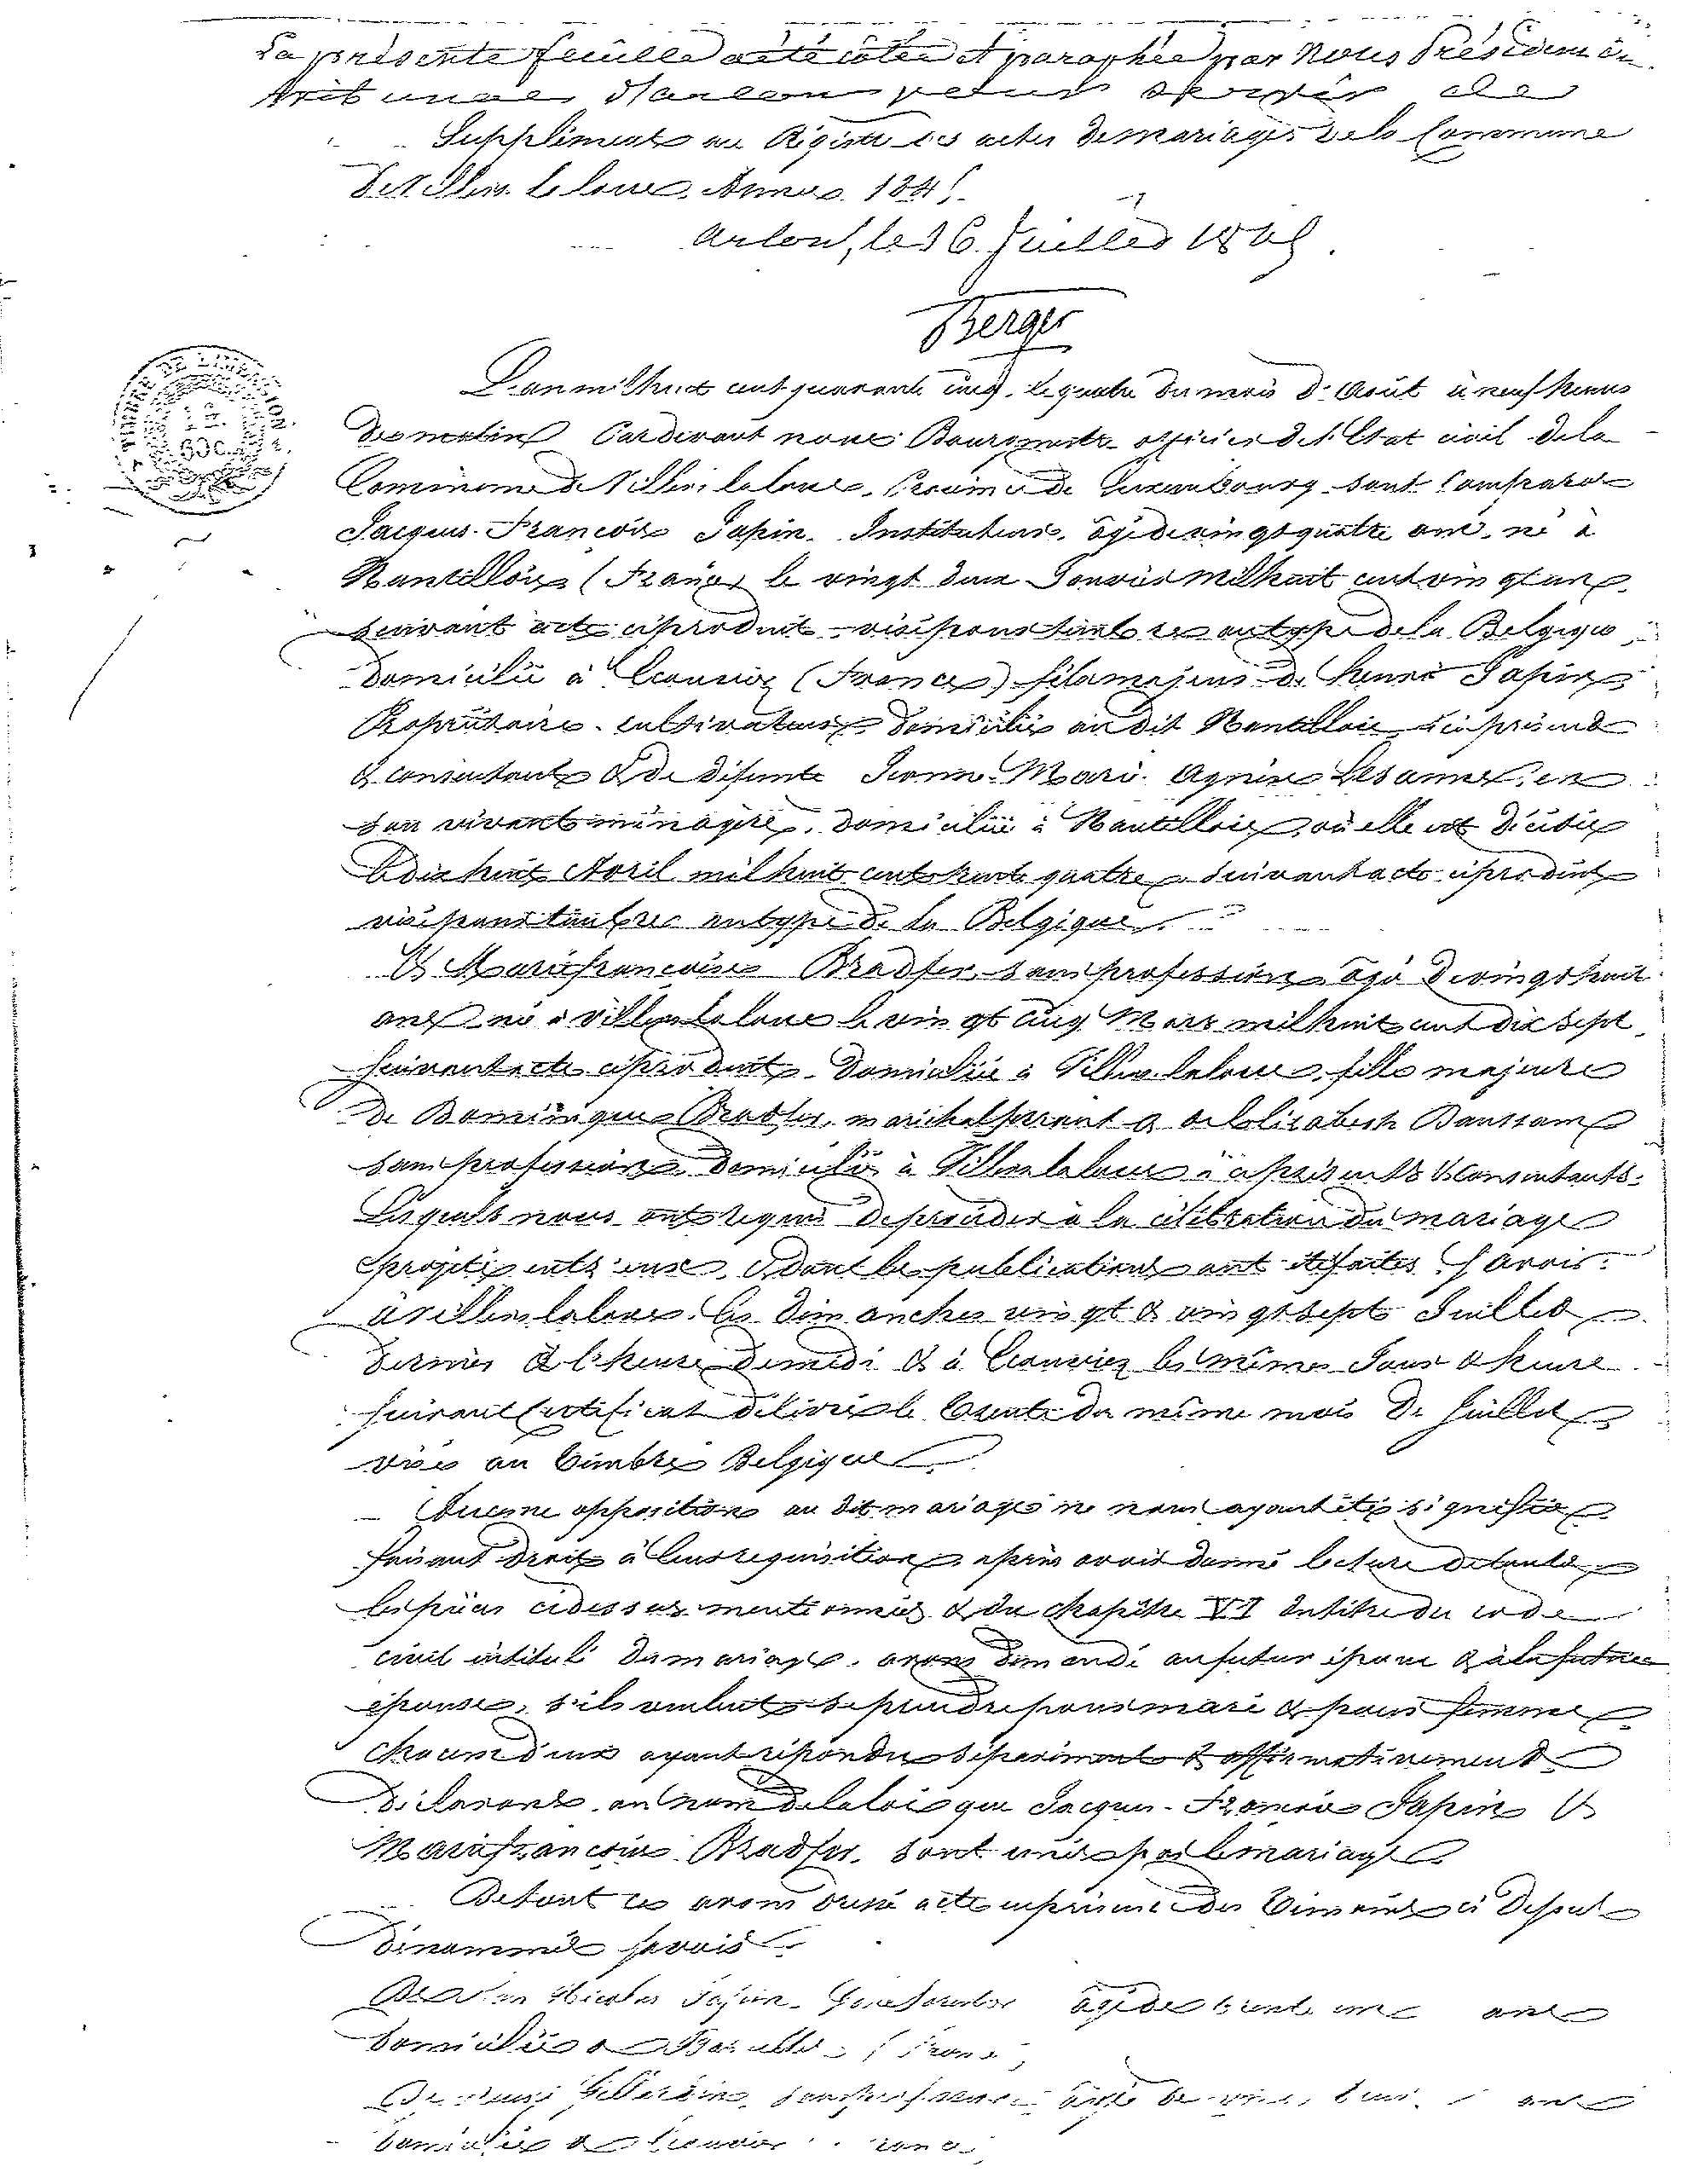 La présente feuille a été cotée et paraphée par Nous Président du
tribunal d'Arlon pour servir de
Supplément au Registre des actes de mariages de la Commune
de Villers la loue, Année 1845.
Arlon, le 16 Juillet 1845.
Berger
L'an mil huit cent quarante cinq, le quatre du mois d'Août à neuf heures
du matin Pardevant nous Bourgmestre officier de l'Etat civil de la
Commune de Villers la loue, Province de Luxembourg sont Comparus
Jacques François Japin Instituteur, âgé de vingt quatre ans, né à
Nantillois (France) le vingt deux Janvier mil huit cent vingt un
suivant acte ci produit visé pour timbre au type de la Belgique
domicilié à Ecouviez (France) fils majeur de Henri Japin
Propriétaire cultivateur domicilié au dit Nantillois, ici présent
& consentant & de défunte Jeanne Marie Agnès en
son vivant ménagère, domiciliée à Nantillois, où elle est décédée
le dix huit Avril mil huit cent trente quatre suivant acte ci produit
visé pour timbre au type de la Belgique.
Et Marie françoise Bradfer, sans profession âgée de vingt huit
ans née à Villers la loue le vingt cinq Mars mil huit cent dix sept
suivant acte ci produit, domiciliée à Villers la loue, fille majeure
de Dominique Bradfer, maréchal ferrant & de Elisabeth
sans profession domiciliés à Villers la loue ici présents & consentants.
Lesquels nous ont requis de procéder à la célébration du mariage
projeté entre eux, & dont les publications ont été faites Savoir:
à Villers la loue les dimanches vingt & vingt sept Juillet
dernier à l'heure de midi & à Ecouviez les mêmes Jours & heure
suivant Certificat délivré le trente du même mois de Juillet
visé au timbre Belgique
Aucune opposition au dit mariage ne nous ayant été signifiée
faisant droit à leur réquisition, après avoir donné lecture de toutes
les pièces ci dessus mentionnées & du chapitre VI du titre du code
civil intitulé du mariage, avons demandé au futur époux & à la future
épouse, s'ils veulent se prendre pour mari & pour femme
chacun d'eux ayant répondu séparément & affirmativement
déclarons au nom de la loi que Jacques François Japin &
Marie françoise Bradfer, sont unis par le mariage
De tout ce avons dressé acte en présence des témoins ci dessous
dénommés savoir
De Nicolas Japin âgé de trente un ans
domicilié à
De âgé de ans
domicilié à Ecouviez